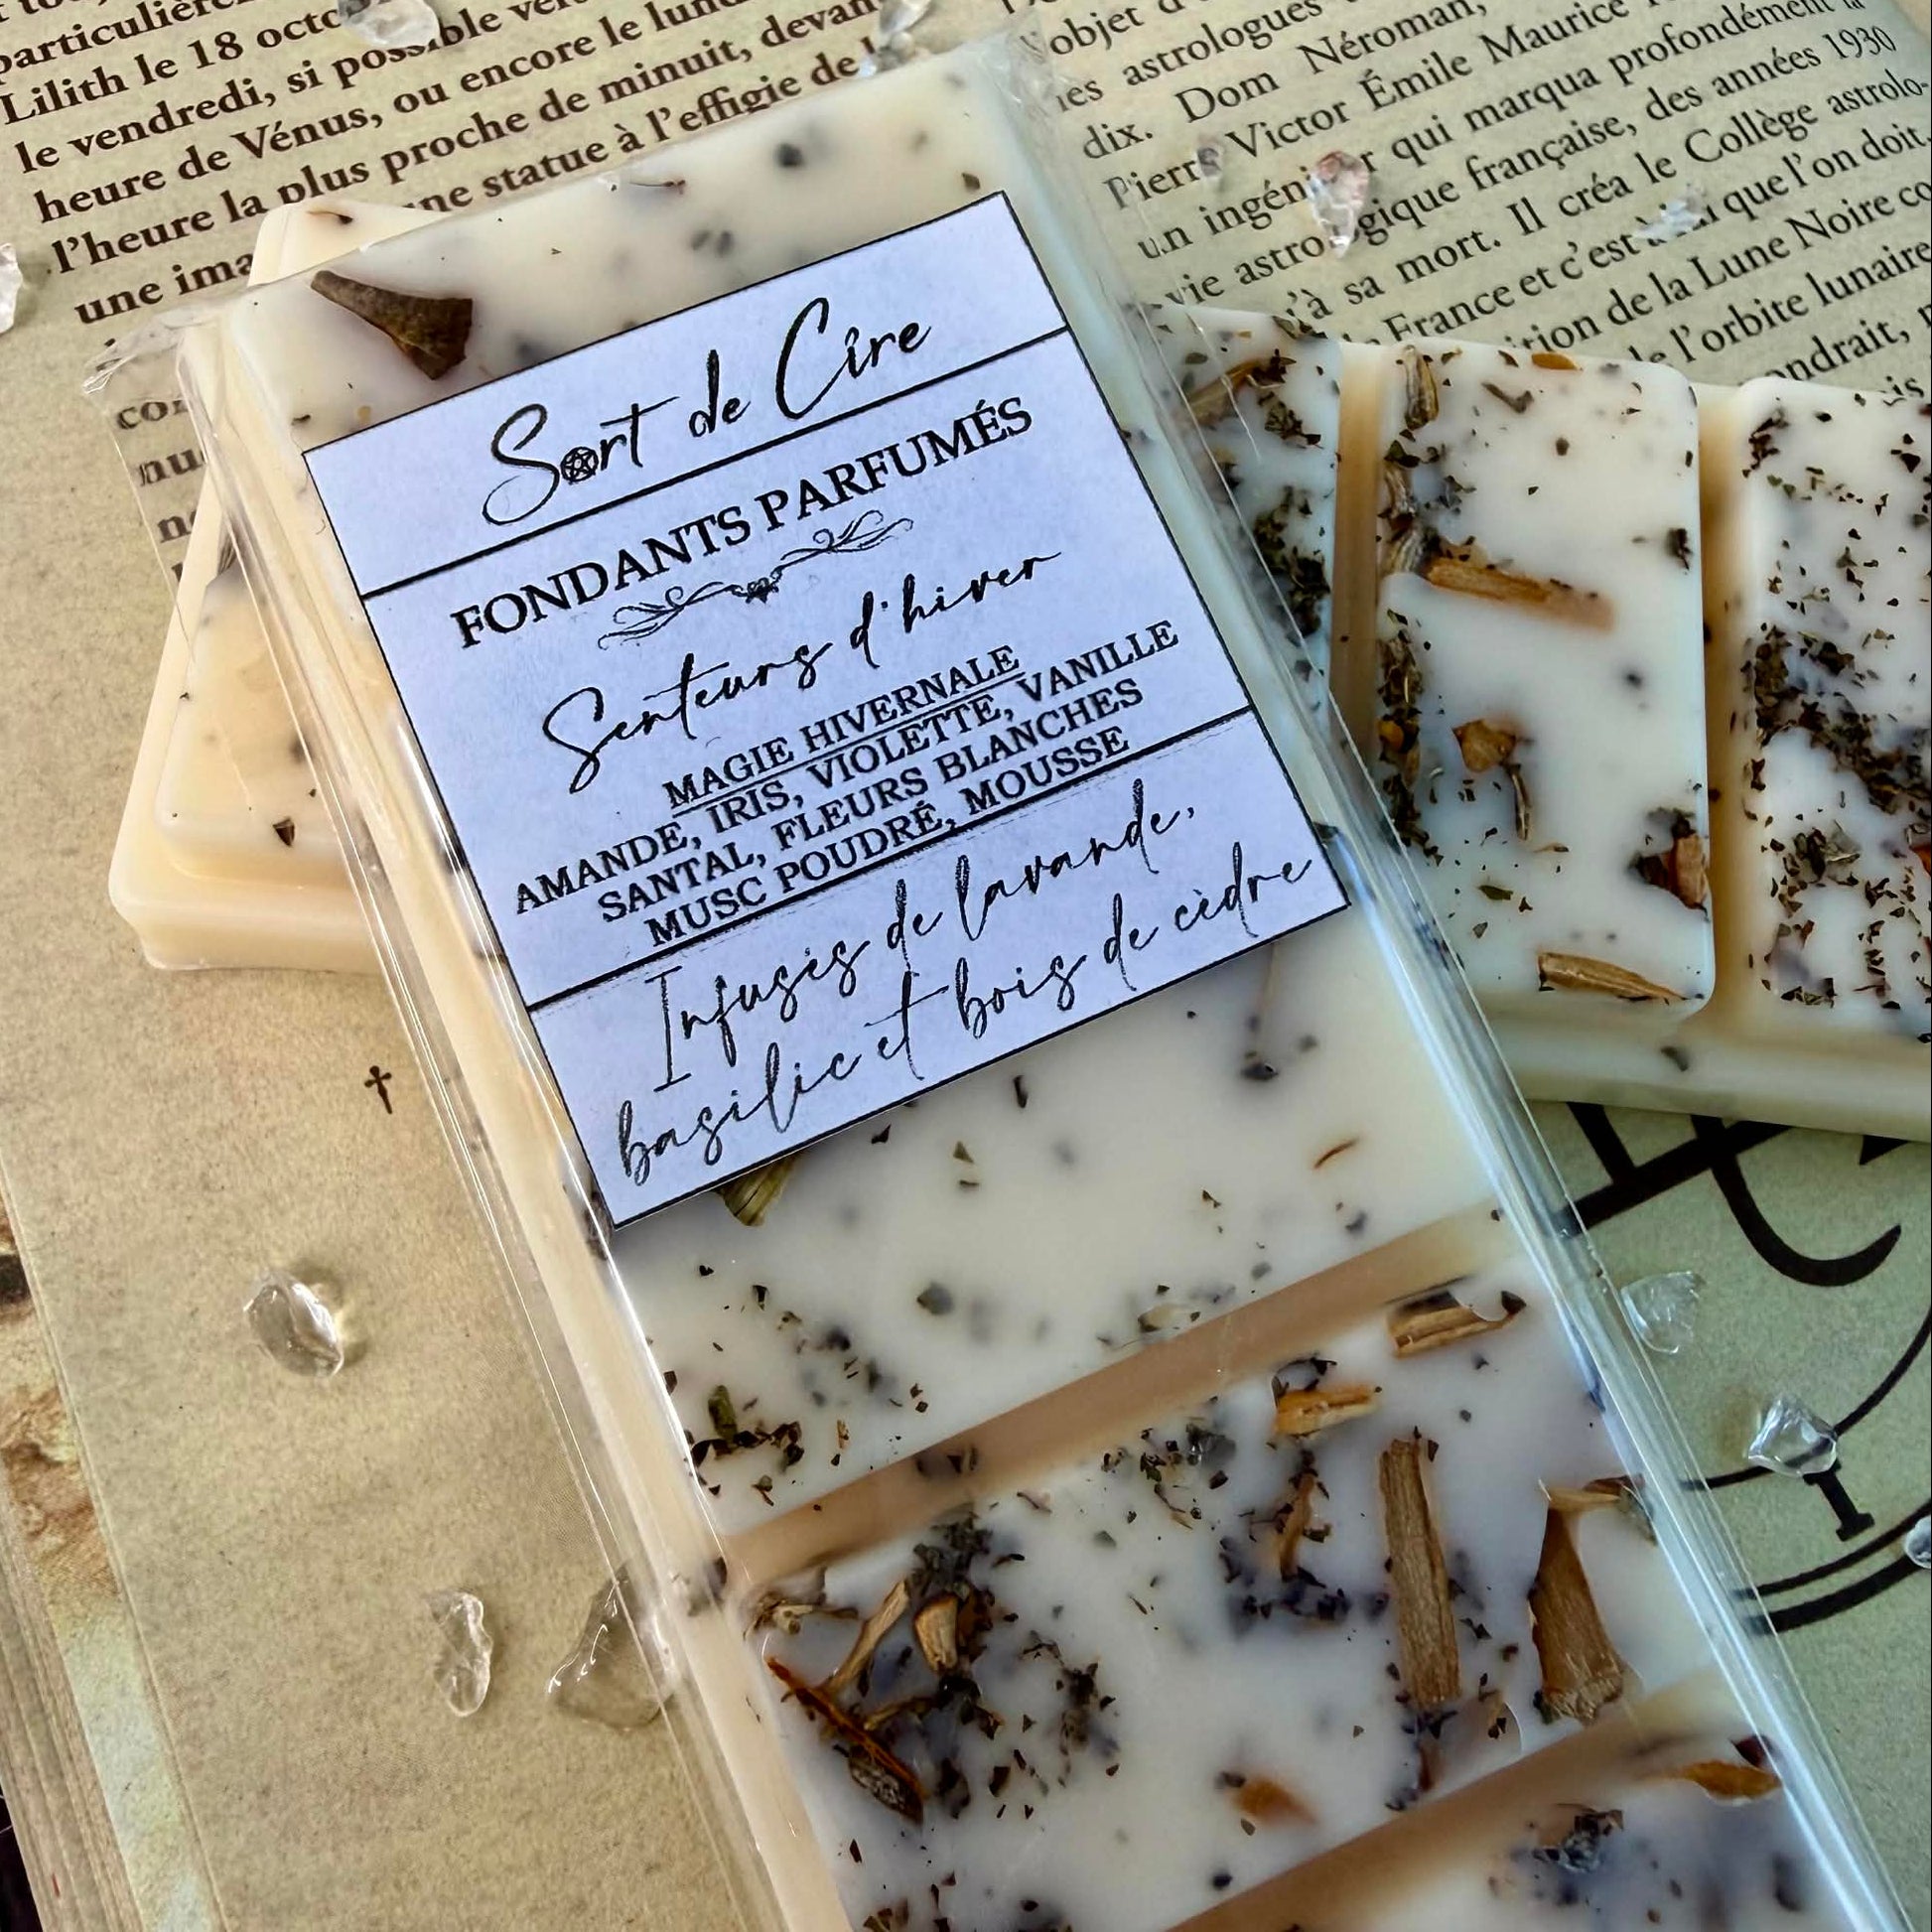 particulière
Lilith le 18 octo
le vendredi, si possible
heure de Vénus, ou encore le lund
l'heure la plus proche de minuit, devant
une ima une statue à l'effigie de
l'objet d'
les astrologues
dix. Dom Néroman,
Pierre Victor Émile Maurice
un ingénieur qui marqua profondément la
vie astrologique française, des années 1930
à sa mort. Il créa le Collège astrolo-
France et c'est à lui que l'on doit
ition de la Lune Noire co
l'orbite lunaire
ondrait,
Sort de Cire
FONDANTS PARFUMÉS
Senteurs d'hiver
MAGIE HIVERNALE
AMANDE, IRIS, VIOLETTE, VANILLE
SANTAL, FLEURS BLANCHES
MUSC POUDRÉ, MOUSSE
Infusés de lavande,
basilic et bois de cèdre